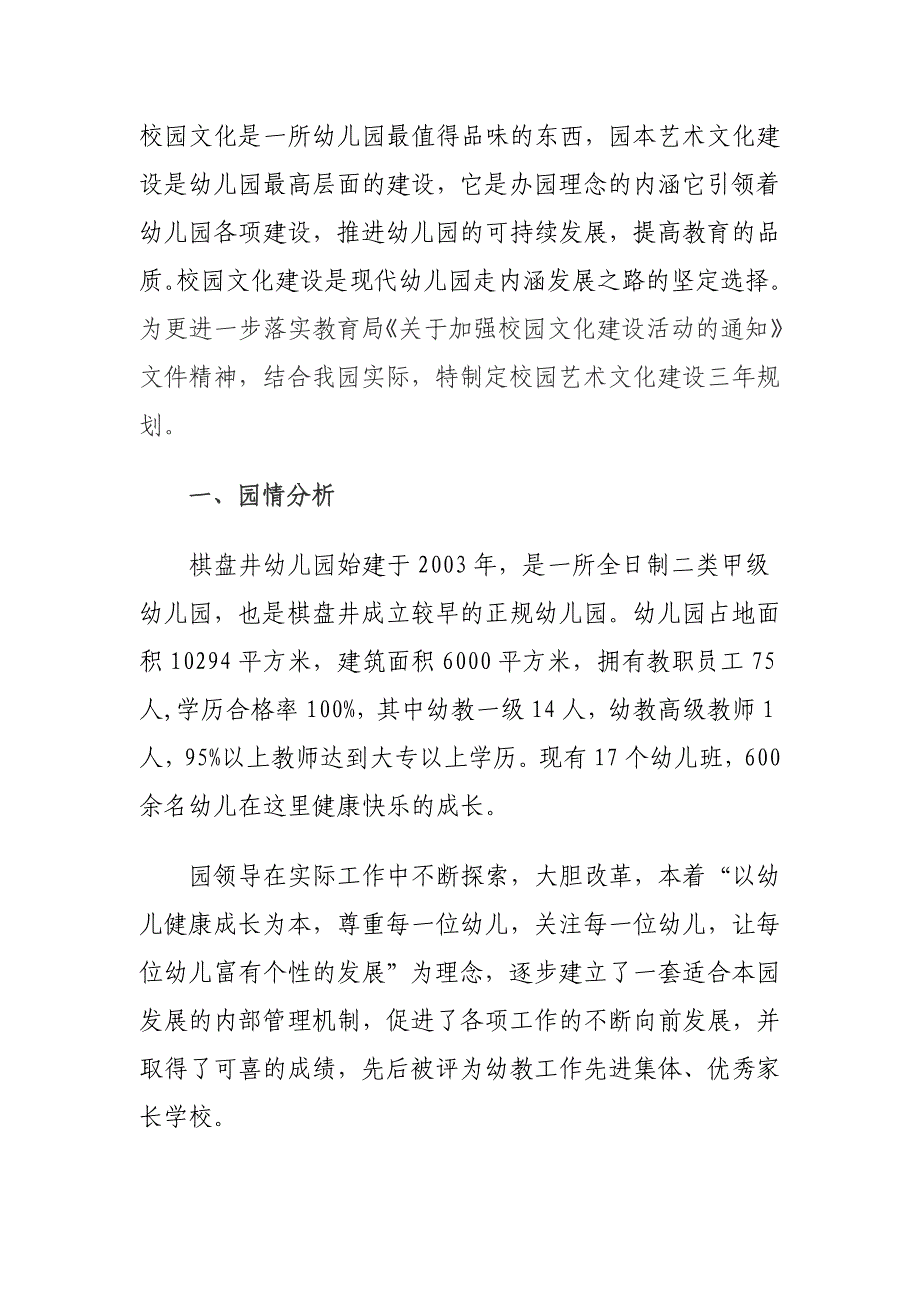 校园文化是一所幼儿园最值得品味的东西，园本艺术文化建
设是幼儿园最高层面的建设，它是办园理念的内涵它引领着
幼儿园各项建设，推进幼儿园的可持续发展，提高教育的品
质。校园文化建设是现代幼儿园走内涵发展之路的坚定选择。
为更进一步落实教育局《关于加强校园文化建设活动的通知》
文件精神，结合我园实际，特制定校园艺术文化建设三年规
划。
一、园情分析
棋盘井幼儿园始建于 2003 年，是一所全日制二类甲级
幼儿园，也是棋盘井成立较早的正规幼儿园。幼儿园占地面
积 10294 平方米，建筑面积 6000 平方米，拥有教职员工 75
人,学历合格率 100%，其中幼教一级 14 人，幼教高级教师 1
人，95%以上教师达到大专以上学历。现有 17 个幼儿班，600
余名幼儿在这里健康快乐的成长。
园领导在实际工作中不断探索，大胆改革，本着“以幼
儿健康成长为本，尊重每一位幼儿，关注每一位幼儿，让每
位幼儿富有个性的发展”为理念，逐步建立了一套适合本园
发展的内部管理机制，促进了各项工作的不断向前发展，并
取得了可喜的成绩，先后被评为幼教工作先进集体、优秀家
长学校。